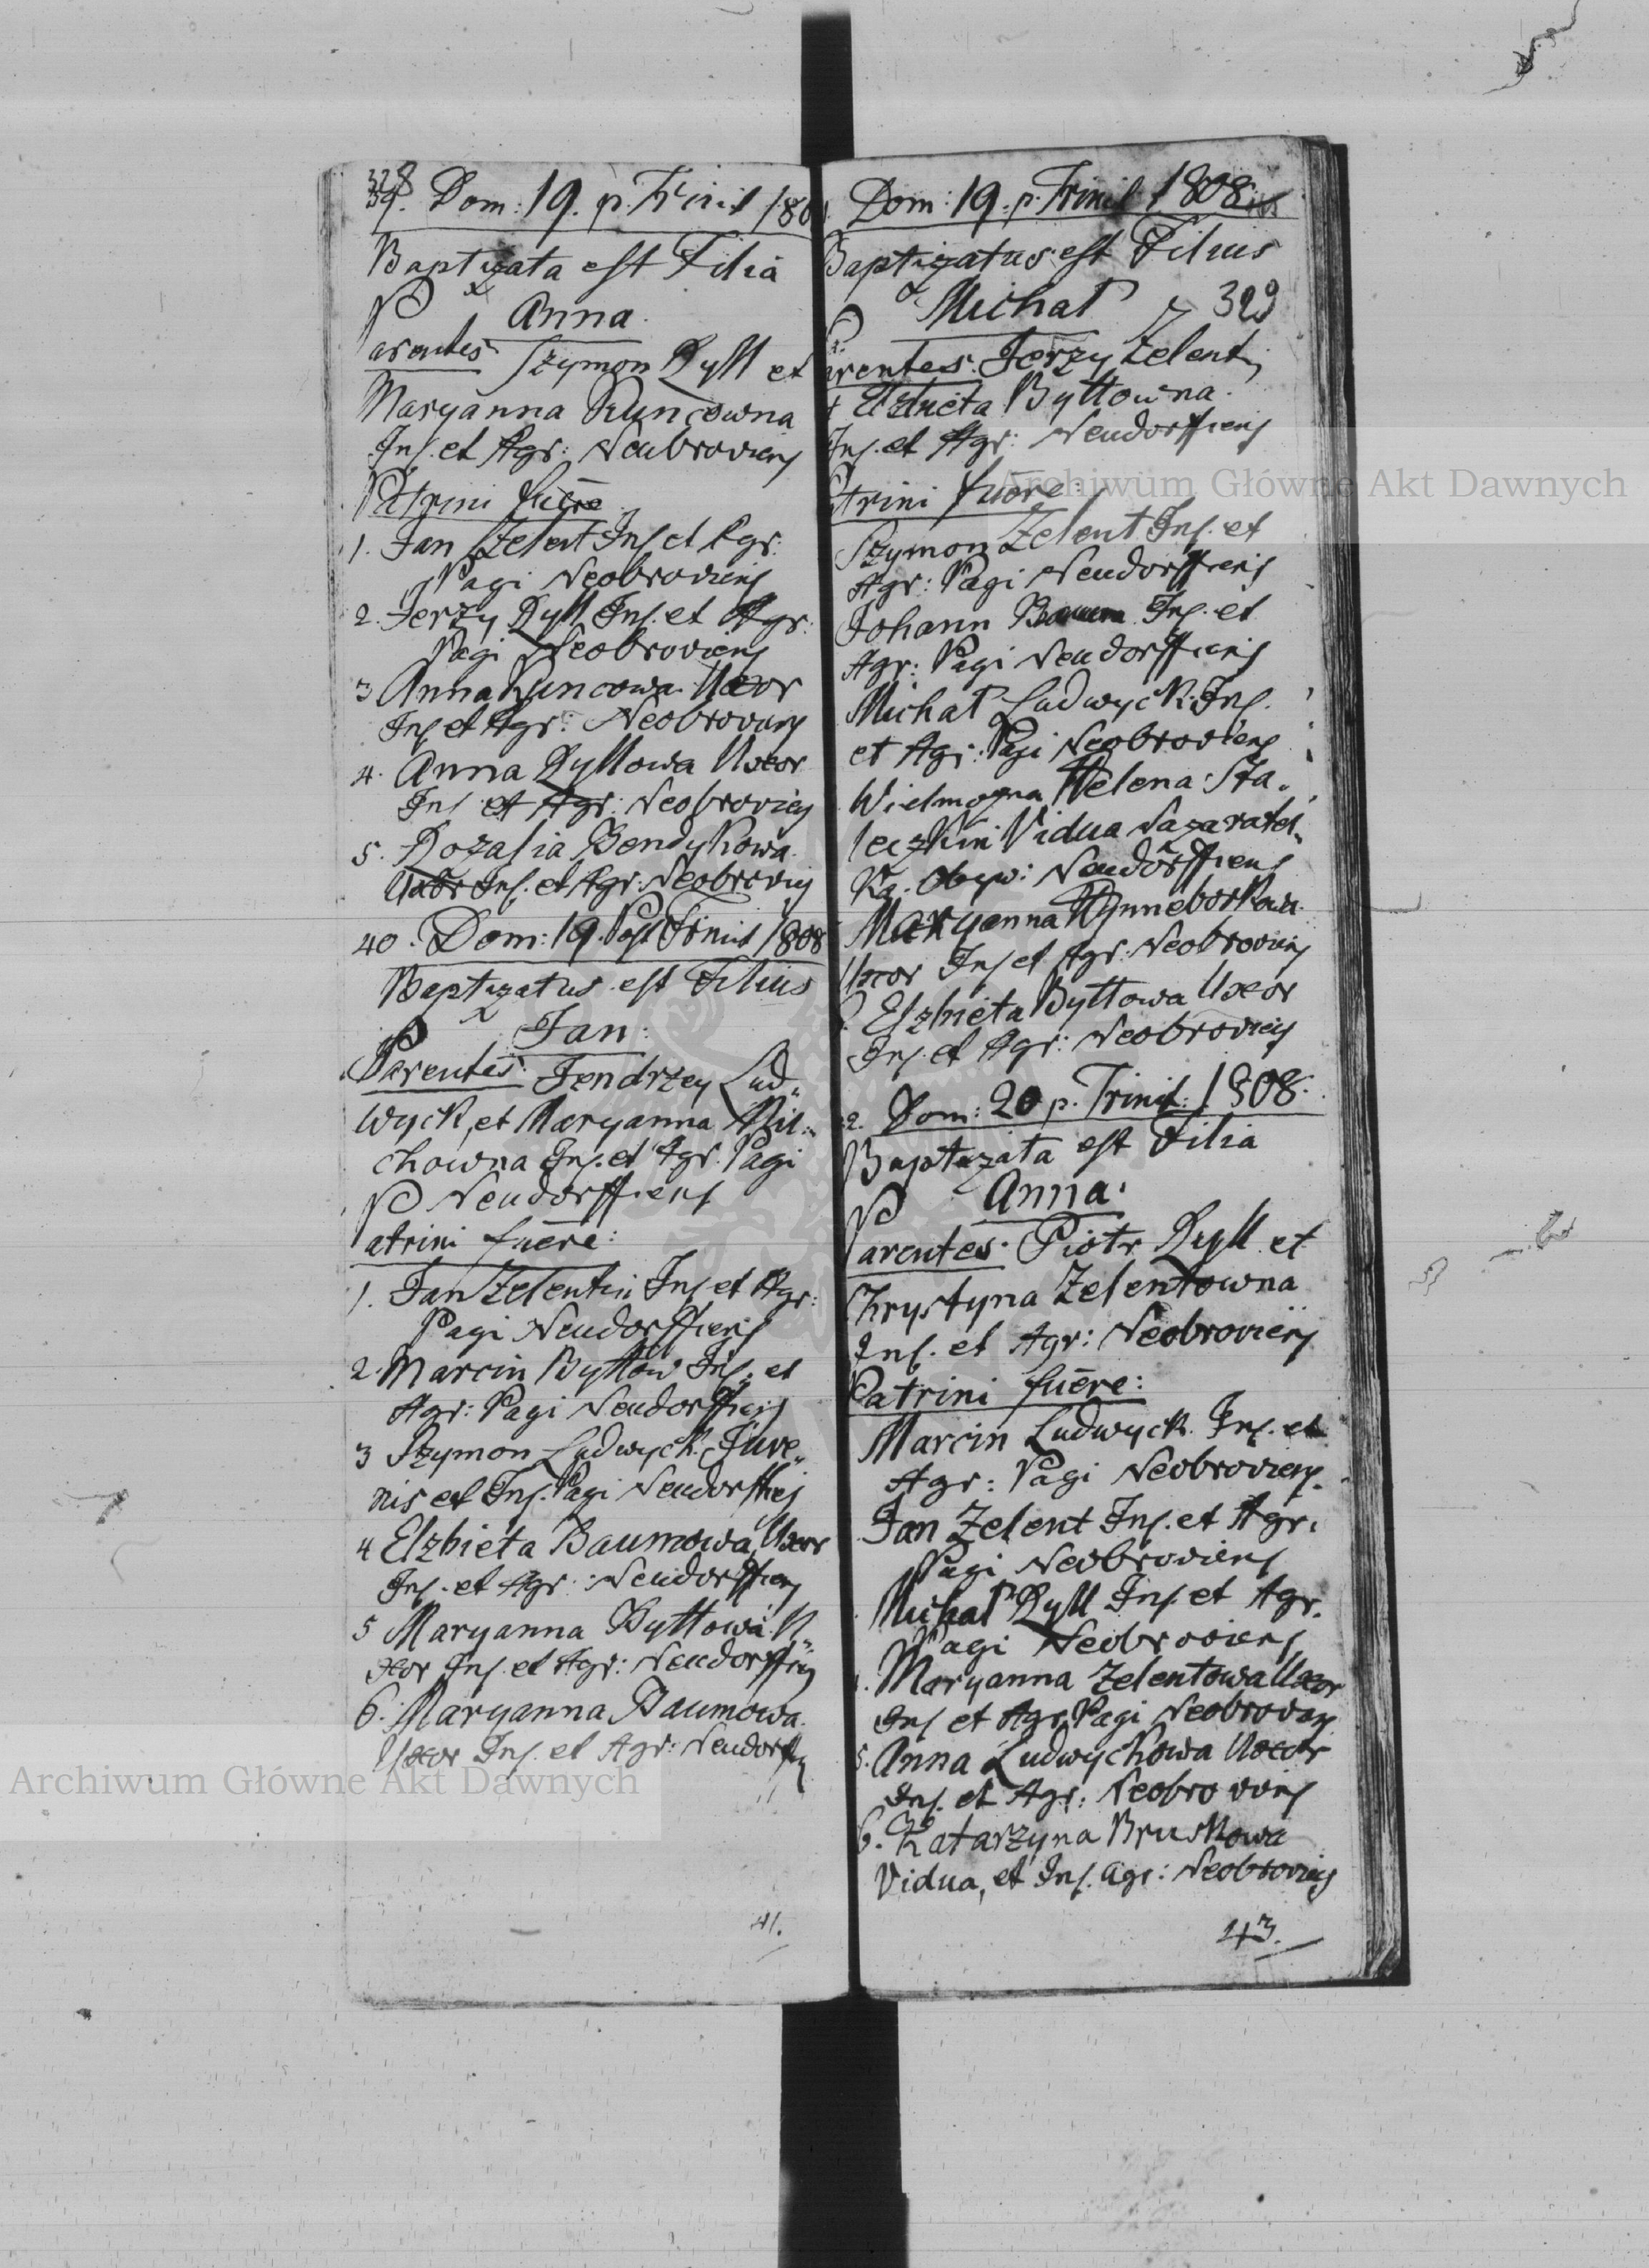 328
39. Dom: 19. p. Trinit 180
Baptizata est Filia
Anna.
Parentes Szymon Ryll et
Maryanna Kuncowna
Ins. et Agr: Neubroviens
Patrini fuēre
1. Jan Zelent Ins et Agr:
Pagi Neobroviens
2. Jerzy Ryll Ins. et Agr:
Pagi Neobroviens
3 Anna Kuncowa Uxor
Ins et Agr: Neobroviens
4. Anna Ryllowa Uxor
Ins et Agr: Neobroviens
5. Rozalia Bendykowa
Uxor Ins. et Agr: Neobroviens
40. Dom: 19. Post Trinit 1808
Baptizatus est Filius
Jan:
Parentes: Jendrzey Lud„
wyck, et Maryanna
chowna Ins. et Agr. Pagi
Neudorffiens
Patrini fuēre:
1. Jan Zelentin Ins et Agr:
Pagi Neudorffiens
2. Marcin Byttow Ins. et
Agr: Pagi Neudorffiens
3 Szymon Ludwyck Juve„
nis et Ins. Pagi Neudorffiens
4 Elzbieta Baumowa, Uxor
Ins. et Agr: Neudorffiens
5 Maryanna Byttowa U„
xor Ins. et Agr: Neudorffiens
6. Maryanna Baumowa.
Uxor Ins. et Agr: Neudorffiens
41.
Dom: 19. p. Trinit 1808.
Baptizatus est Filius
Michał 329
Parentes. Jerzy Zelent,
et Elzbieta Byttowna.
Ins. et Agr: Neudorffiens
Patrini fuēre:
Szymon Zelent Ins. et
Agr: Pagi Neudorffiens
Johann Baum Ins. et
Agr: Pagi Neudorffiens
Michał Ludwyck Ins.
et Agr: Pagi Neobroviens
Wielmozna Helena Sta„
Vidua
Obyw: Neudorffiens
Maryanna Rynneborkowa
Uxor Ins et Agr: Neobroviens
6. Elzbieta Byttowa Uxor
Ins. et Agr: Neobroviens
2. Dom: 20 p. Trinit: 1808.
Baptizata est Filia
Anna.
Parentes. Piotr Ryll et
Chrystyna Zelentowna
Ins. et Agr: Neobroviens
Patrini fuēre:
Marcin Ludwyck Ins. et
Agr: Pagi Neobroviens.
Jan Zelent Ins. et Agr.
Pagi Neobroviens
Michał Ryll Ins. et Agr.
Pagi Neobroviens
4. Maryanna Zelentowa Uxor
Ins et Agr. Pagi Neobroviens
5. Anna Ludwyckowa Uxor
Ins. et Agr: Neobroviens
6. Katarzyna Bruskowa
Vidua, et Ins. agr: Neobroviens
43.
Archiwum Główne Akt Dawnych
Archiwum Główne Akt Dawnych